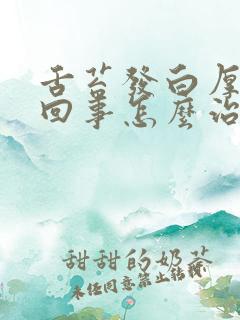 舌苔發白厚
回事怎麼治
甜甜的奶茶
未經同意禁止轉載